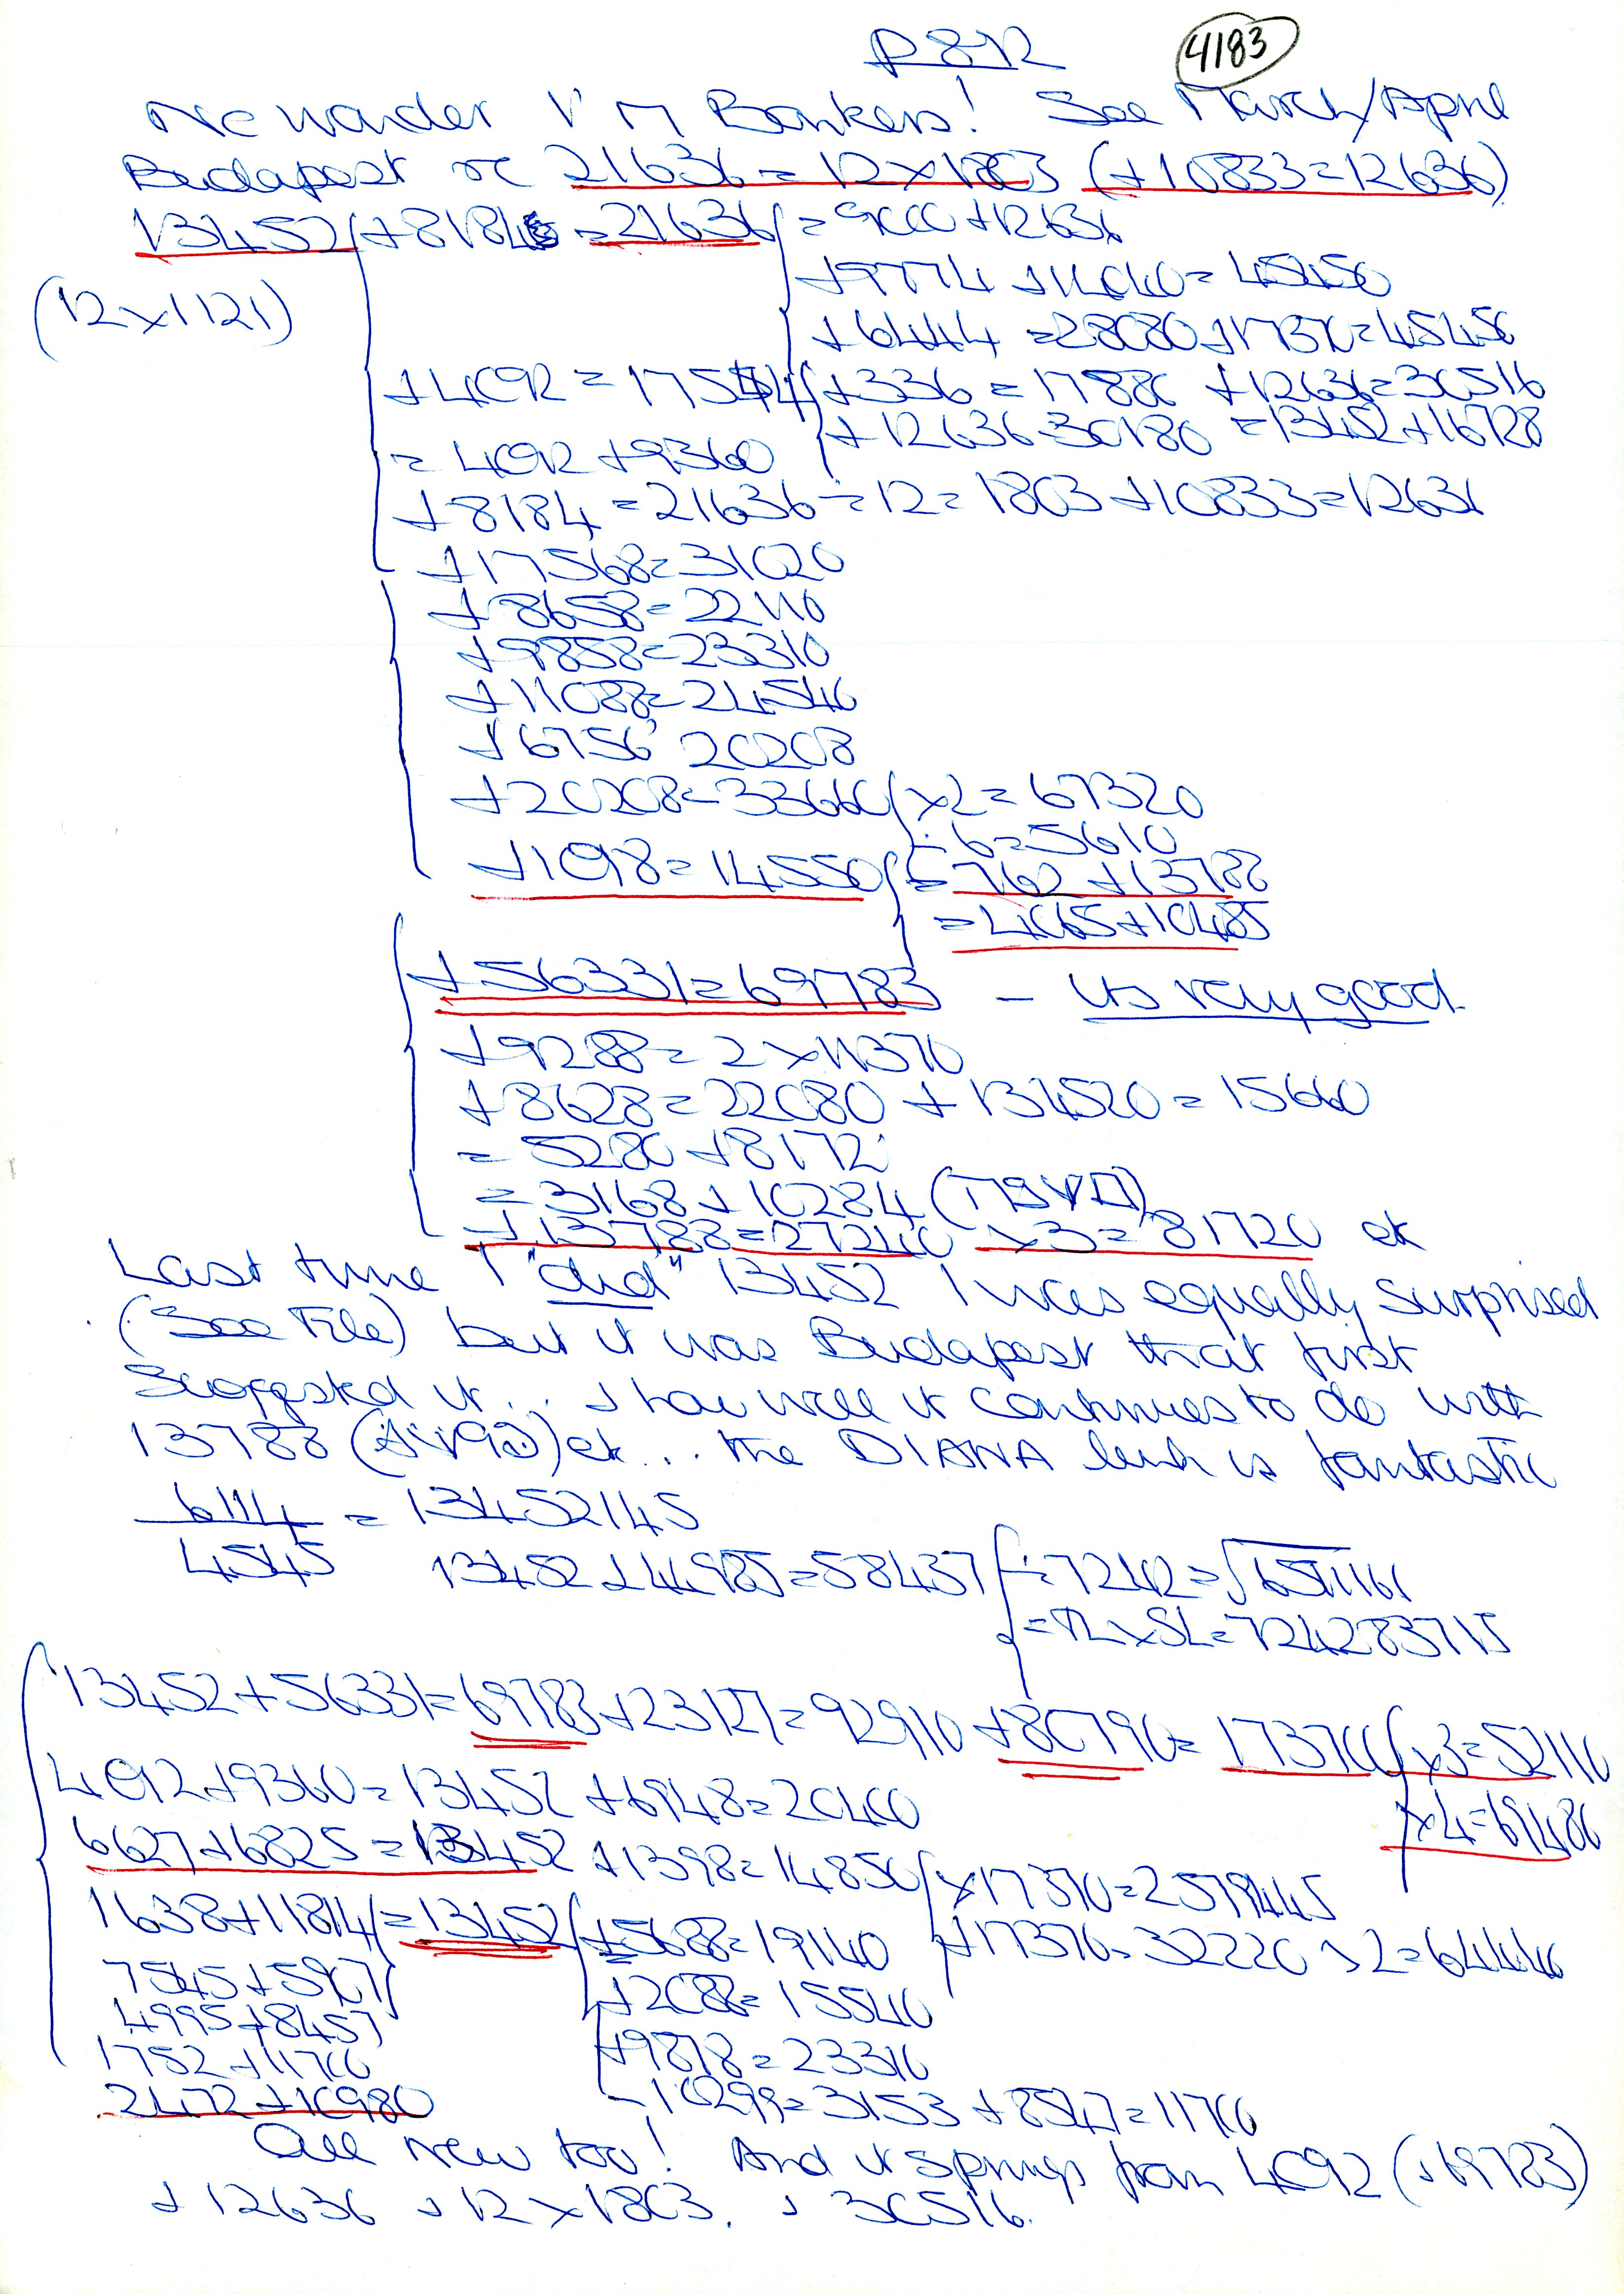 P 812
4183
No wonder I'm Bonkers! See March/April
Budapest re 21636 = 12 x 1803 (+10833=12636)
13452 +8184 = 21636 = 9000 +12636
+9774 +14040 = 45450
(12x1121)
+6444 = 28080 +17370=45450
+4092 = 17544 +336 = 17880 +12636=30516
+12636=30180 = 13452+16728
= 4092 +9360
+8184 = 21636 ÷12 = 1803 +10833=12636
+17568=31020
+8658=22110
+9858=23310
+11088=24540
+6756 20208
+20208=33660 x2= 67320
÷6=5610
+1098=14550 = 762 +13788
= 4065+10485
+56331=69783 – its very good
+9288= 2 x11370
+8628=22080 + 134520 = 15660
= 5280 +8172
= 3168 +10284
+13788=27240 x3= 81720 etc
Last time I "did" 13452 I was equally surprised
(See File) but it was Budapest that first
suggested it... + how well it continues to do with
13788 etc... the DIANA link is fantastic
6114 = 13452145
4545
13452 +44985=58437 ÷ 7242=√
= 12 x SL=724283715
13452+56331=69783+23127=92910 +80790= 173700 x3=52110
4092+9360=13452 +6948=20400
x4=69480
6627+6825 = 13452 +1398=14850 x17370=2579445
1638+11814 =13452 +5688=19140 +17370=32220 x2=64440
7545+5907
+2088=15540
4995+8457
+9878=23310
1752+11700
2472+10980
-10299=3153 +8547=11700
All new too! And it springs from 4092 (+69783)
+ 12636 + 12 x 1803. + 30516.